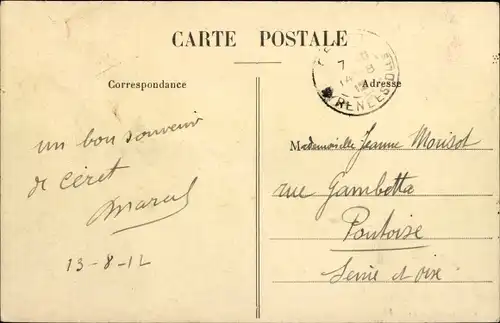 CARTE POSTALE
Correspondance
Adresse
7
14 8
un bon souvenir
de Céret
Marcel
13-8-12
Mademoiselle Jeanne Morisot
rue Gambetta
Pontoise
Seine et Oise